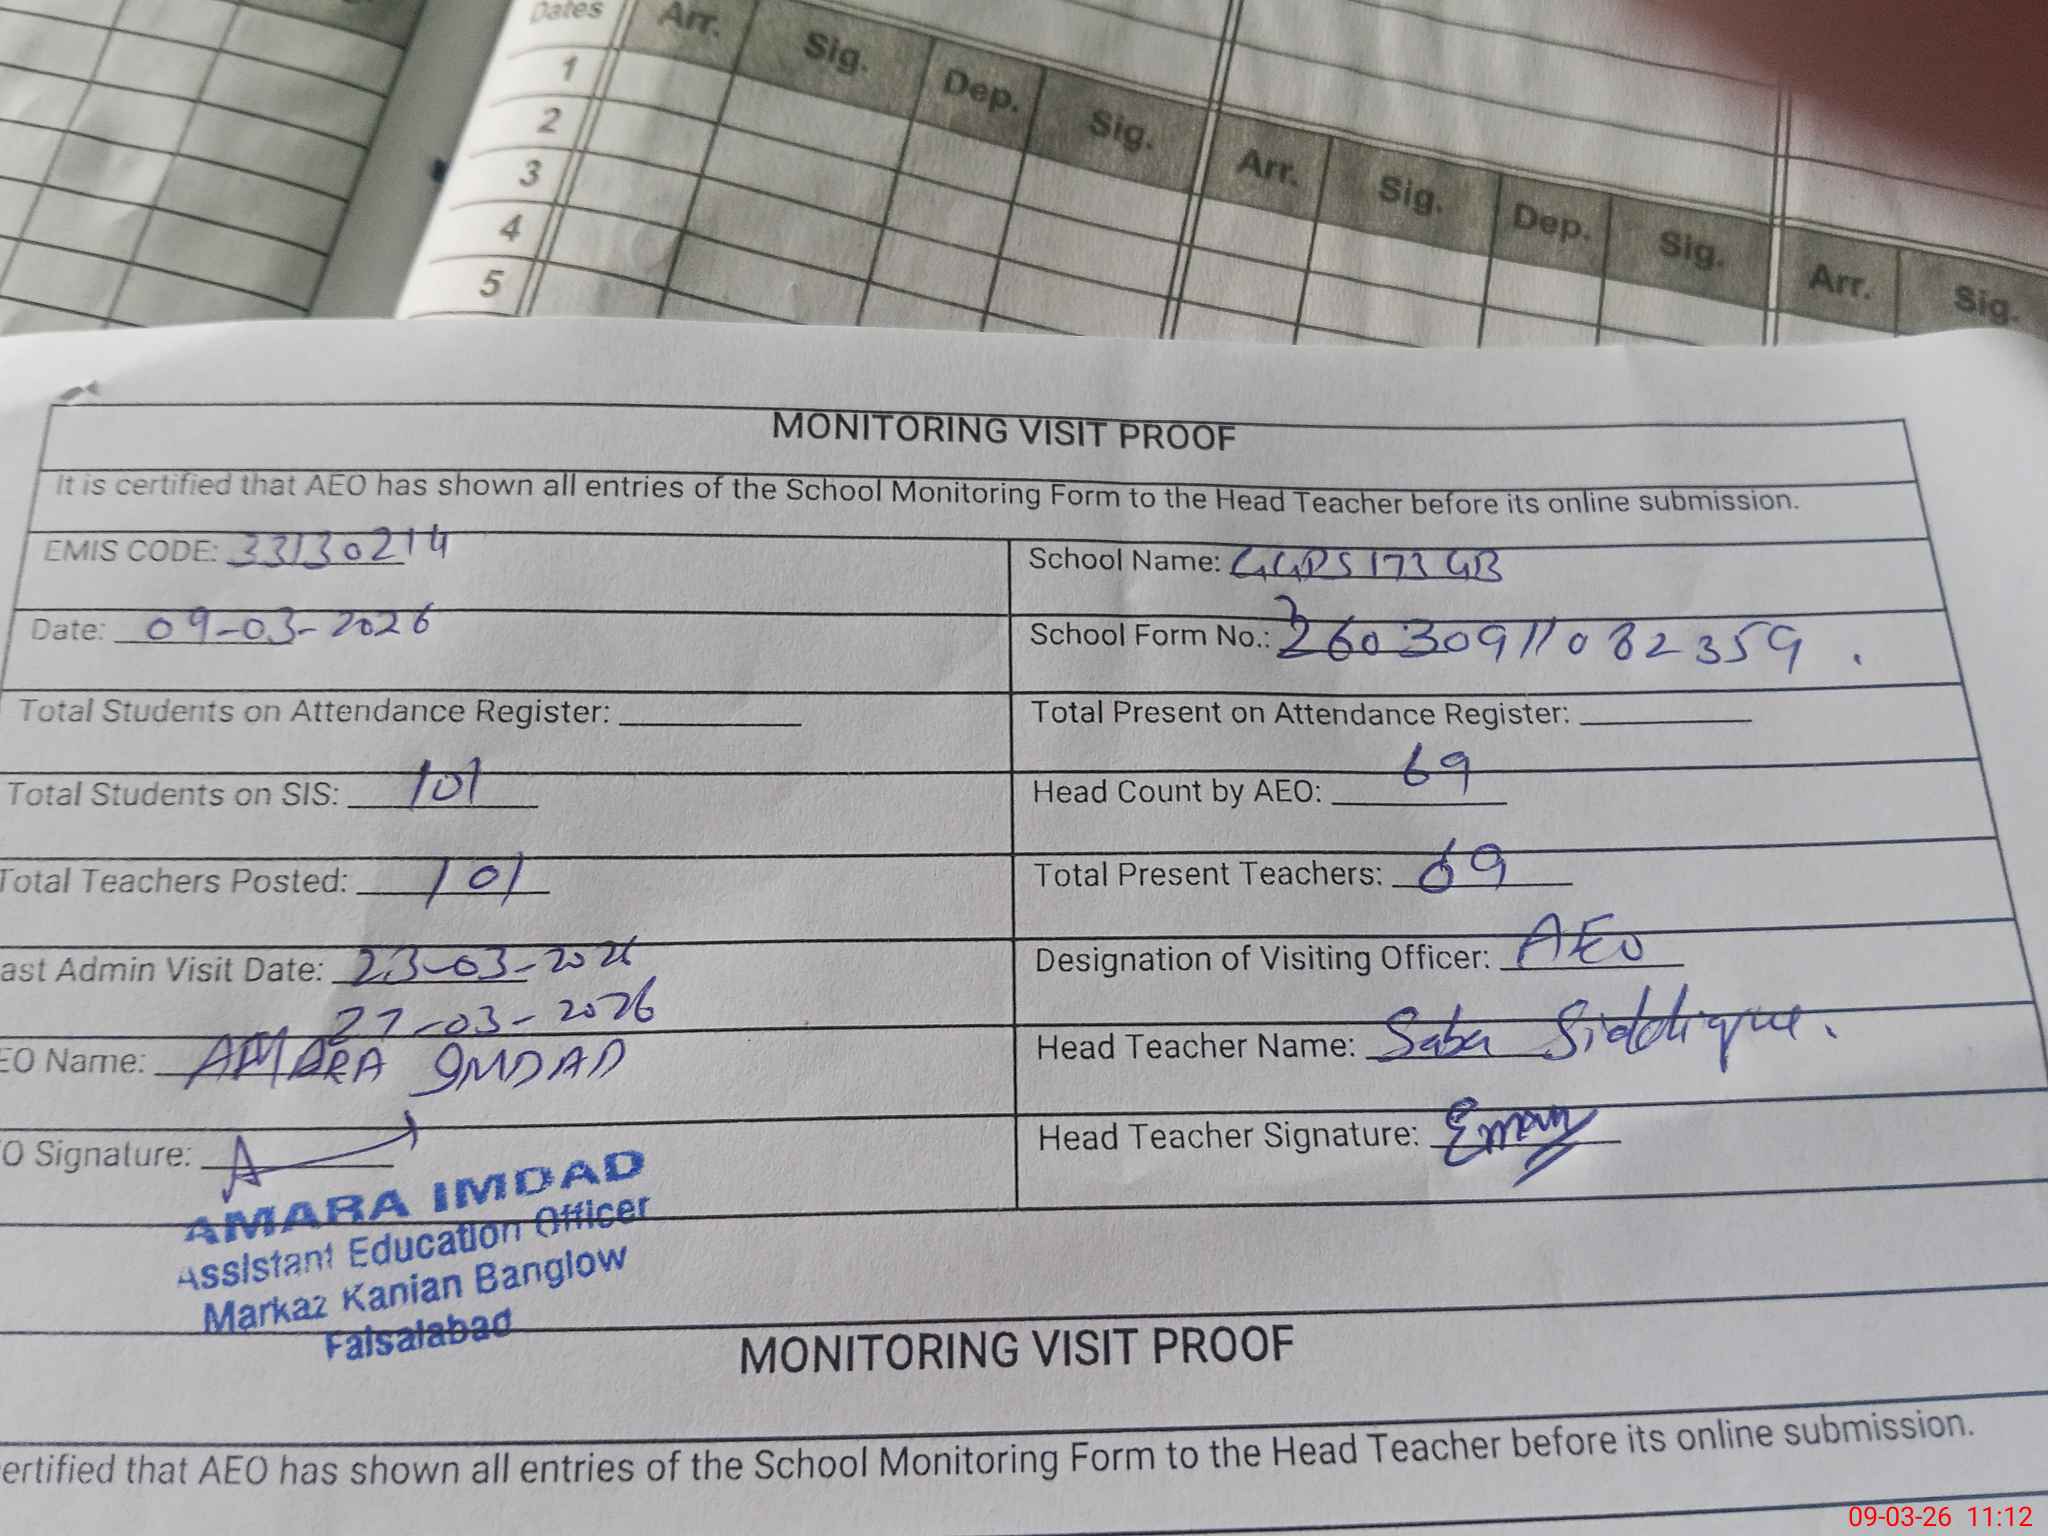 Dates Arr. Sig. Dep. Sig. Arr. Sig. Dep. Sig. Arr. Sig.
1
2
3
4
5
MONITORING VISIT PROOF
It is certified that AEO has shown all entries of the School Monitoring Form to the Head Teacher before its online submission.
EMIS CODE: 33130214
School Name: GGPS 173 GB
Date: 09-03-2026
School Form No.: 26030911082359.
Total Students on Attendance Register:
Total Present on Attendance Register:
Total Students on SIS: 101
Head Count by AEO: 69
Total Teachers Posted: 101
Total Present Teachers: 69
ast Admin Visit Date: 23-03-2026
Designation of Visiting Officer: AEO
27-03-2026
EO Name: AMARA IMDAD
Head Teacher Name: Saba Siddique.
O Signature: A
Head Teacher Signature: Eman
AMARA IMDAD
Assistant Education Officer
Markaz Kanian Banglow
Faisalabad
MONITORING VISIT PROOF
ertified that AEO has shown all entries of the School Monitoring Form to the Head Teacher before its online submission.
09-03-26 11:12